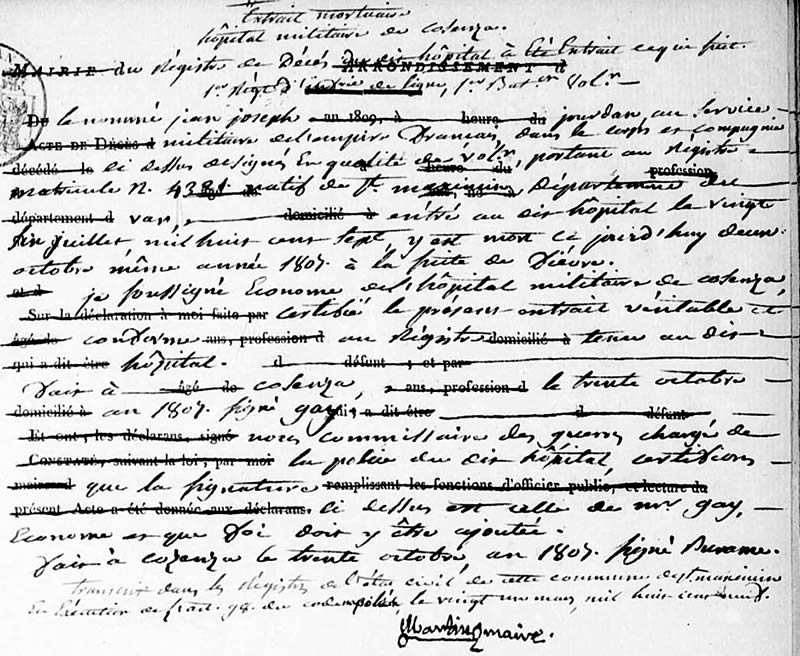 Extrait mortuaire
hôpital militaire de cosenza.
MAIRIE du Régistre de Décés du dit hôpital à Eté Extrait ce qui suit. ARRONDISSEMENT d
1er Régt d'infrie de ligne, 1er Baton Volr
DU le nommé jean joseph an 1809, à heure du jourdan, au service
ACTE DE DÉCÈS d militaire de l'empire Francais, dans le corps et compagnie
décédé le ci dessus designés En qualité de volr, heure du portant au Régistre
matricule N. 4381 natif de St maximin Département du profession
département d var, domicilié à entré au dit hôpital le vingt
six juillet mil huit cent sept, y est mort ce jourd'huy deux
octobre même année 1807. à la suite de Fièvre.
et d je soussigné Econome de l'hôpital militaire de cosenza,
Sur la déclaration à moi faite par certifié le présent extrait véritable et
âgé de conforme ans, profession d au Régistre domicilié à tenu au dit
qui a dit être hôpital. d défunt ; et par
Fait à âgé de cosenza, ans, profession d le trente octobre
domicilié à an 1807. signé gay, qui, a dit être d défunt
Et ont, les déclarans, signé nous commissaire des guerres chargé de
CONSTATÉ, suivant la loi, par moi la police du dit hôpital, certifions
maire d que la signature remplissant les fonctions d'officier public, et lecture du
présent Acte a été donnée aux déclarans. ci dessus est celle de mr gay,
Econome et que Foi doit y être ajoutée.
Fait à cozenza le trente octobre, an 1807. signé
transcrit dans les Régistres de l'état civil de cette commune de st maximin
En Exécution de l'art. 98. du code le vingt un mars, mil huit cent neuf.
Martin maire.